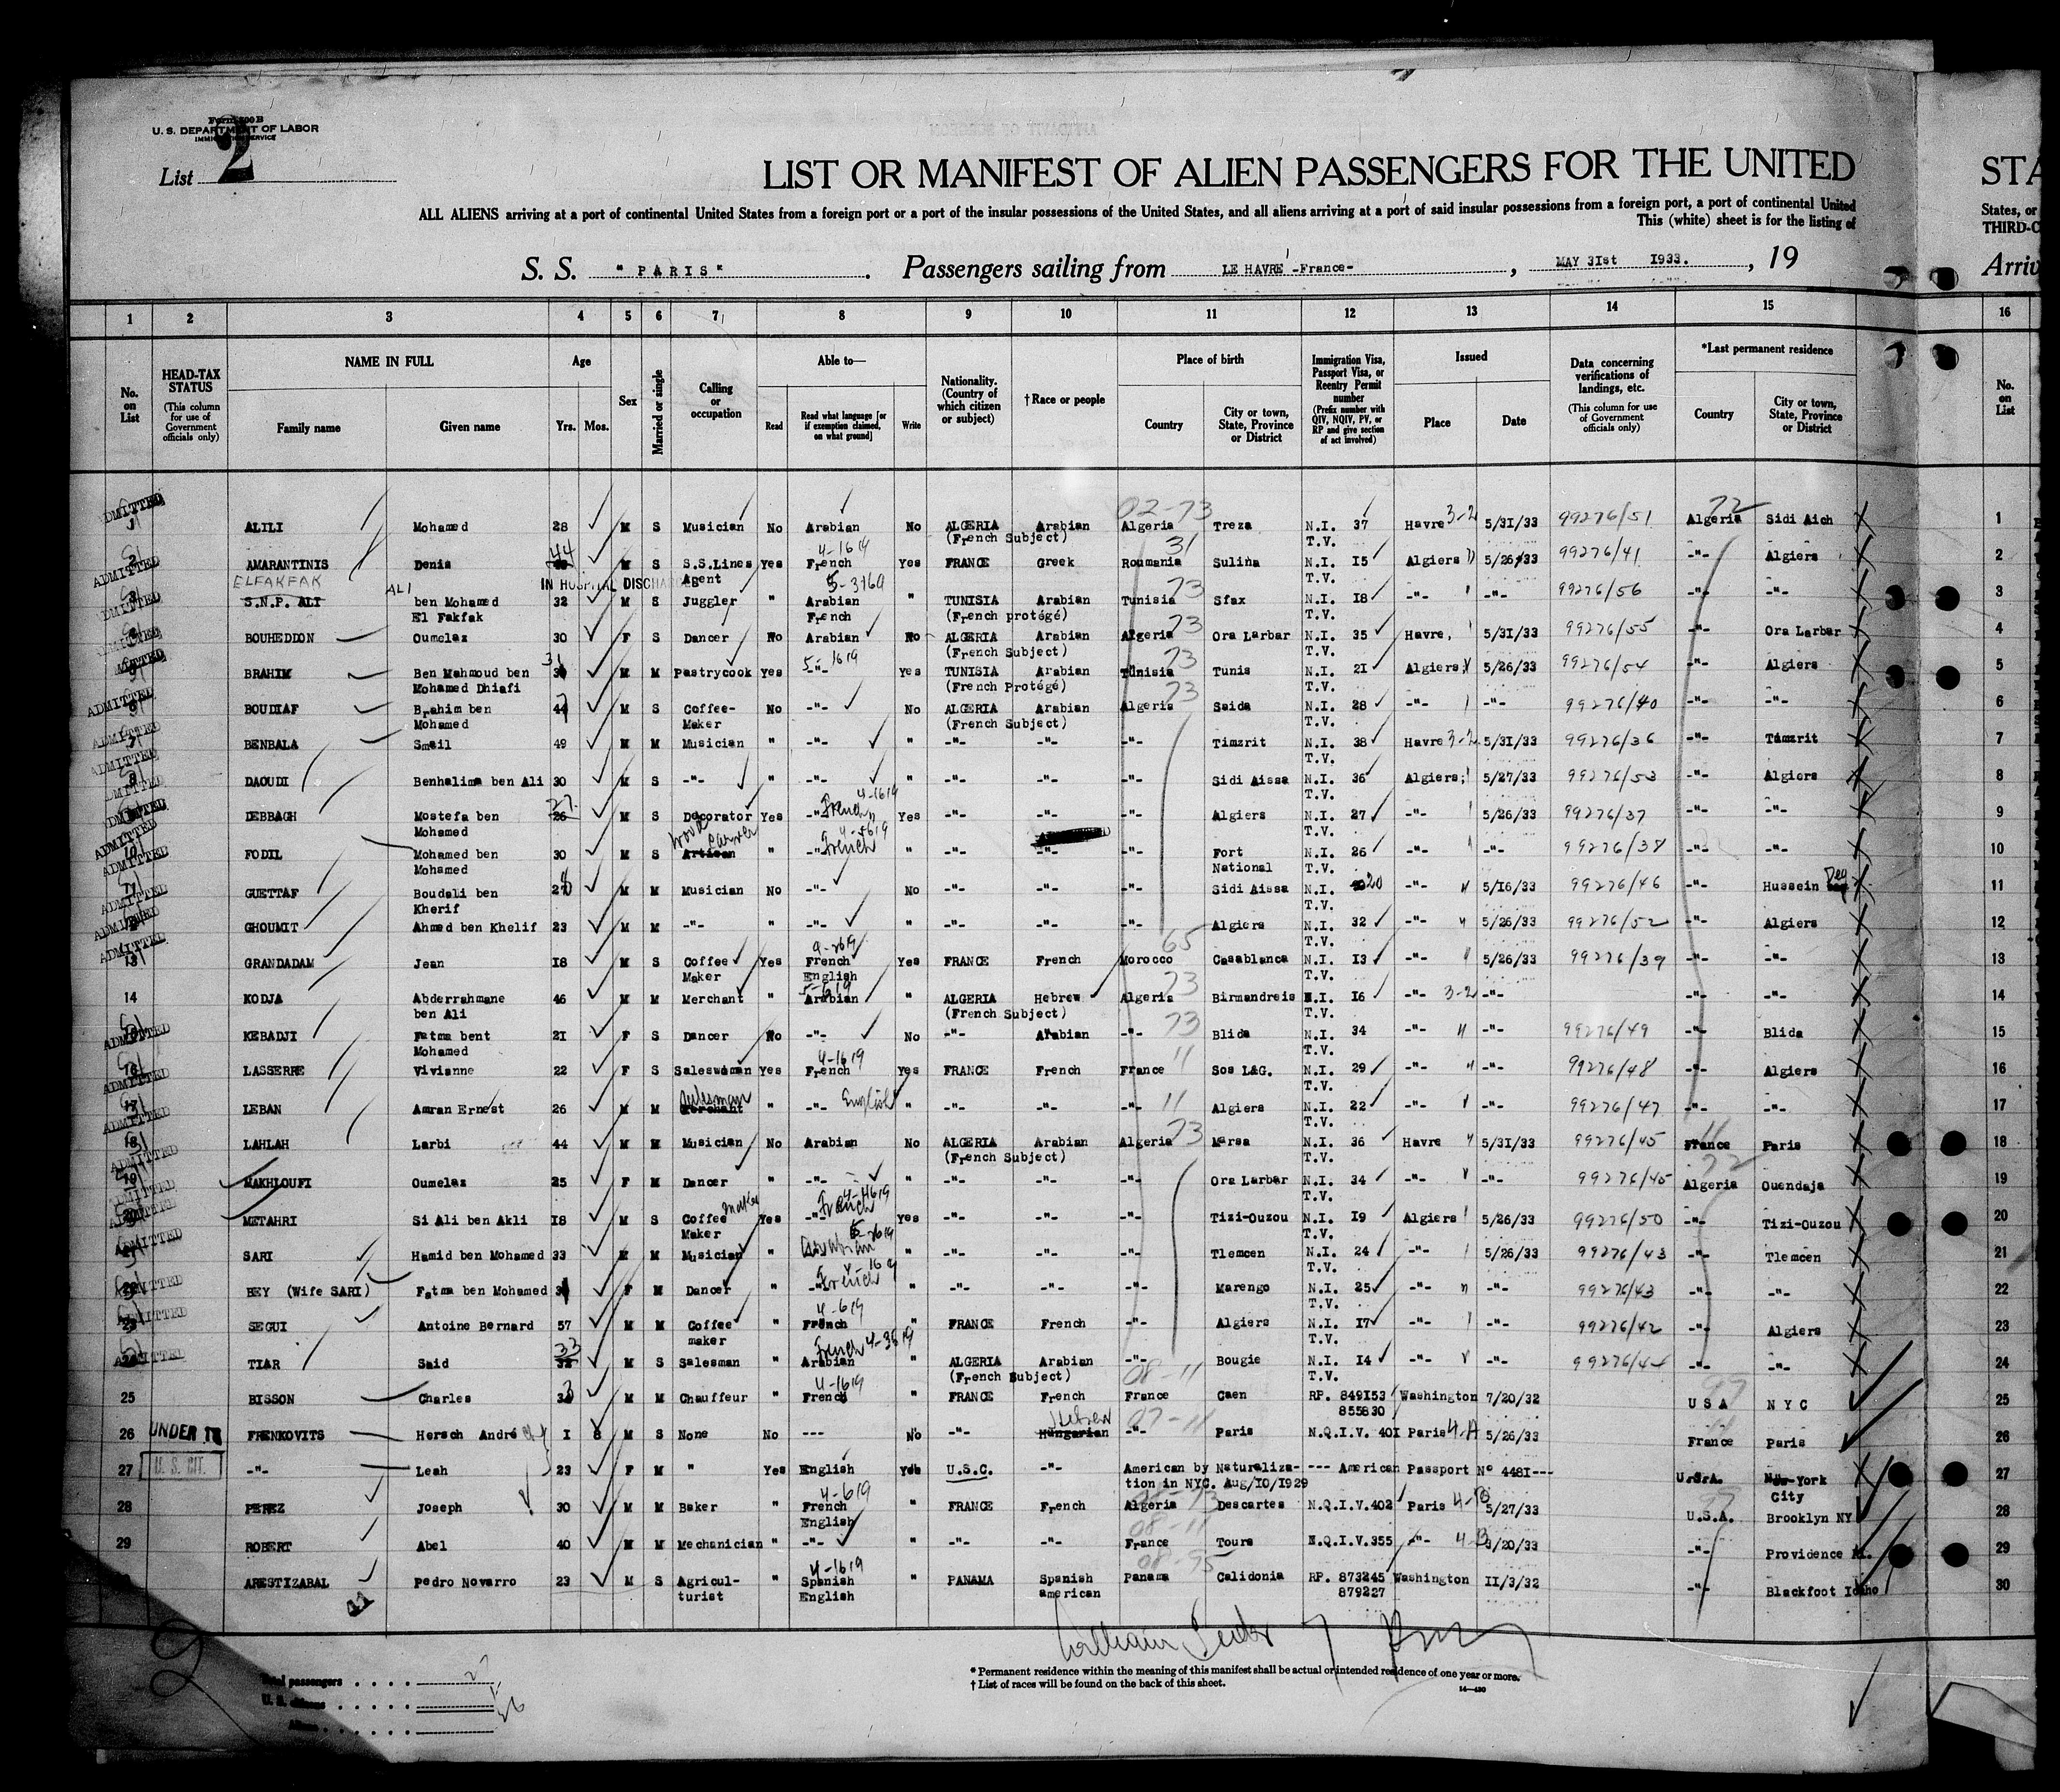 Form 500 B
U. S. DEPARTMENT OF LABOR
IMMIGRATION SERVICE
List 2
LIST OR MANIFEST OF ALIEN PASSENGERS FOR THE UNITED
STA
ALL ALIENS arriving at a port of continental United States from a foreign port or a port of the insular possessions of the United States, and all aliens arriving at a port of said insular possessions from a foreign port, a port of continental United
States, or
This (white) sheet is for the listing of
THIRD-C
S. S. "PARIS". Passengers sailing from LE HAVRE -France-, MAY 31st 1933., 19
Arriv
1 2 3 4 5 6 7 8 9 10 11 12 13 14 15 16
No. on List
HEAD-TAX STATUS (This column for use of Government officials only)
NAME IN FULL Family name Given name
Age Yrs. Mos.
Sex
Married or single
Calling or occupation
Able to— Read Read what language [or if exemption claimed, on what ground] Write
Nationality. (Country of which citizen or subject)
†Race or people
Place of birth Country City or town, State, Province or District
Immigration Visa, Passport Visa, or Reentry Permit number (Prefix number with QIV, NQIV, PV, or RP and give section of act involved)
Issued Place Date
Data concerning verifications of landings, etc. (This column for use of Government officials only)
*Last permanent residence Country City or town, State, Province or District
No. on List
02-73 72
ADMITTED 1 ALILI Mohamed 28 M S Musician No Arabian No ALGERIA (French Subject) Arabian Algeria Treza N.I. T.V. 37 Havre 3-2 5/31/33 99276/51 Algeria Sidi Aich 1
ADMITTED 2 AMARANTINIS Denis 44 M S S.S.Lines Agent Yes 4-1619 French Yes FRANCE Greek 31 Roumania Sulina N.I. T.V. 15 Algiers 5/26/33 99276/41 -"- Algiers 2
IN HOSPITAL DISCHA
ADMITTED 3 ELFAKFAK S.N.P. ALI ALI ben Mohamed El Fakfak 32 M S Juggler " Arabian French " TUNISIA (French protégé) Arabian 73 Tunisia Sfax N.I. T.V. 18 -"- -"- 99276/56 -"- -"- 3
ADMITTED 4 BOUHEDDON Oumelaz 30 F S Dancer No Arabian No ALGERIA (French Subject) Arabian 73 Algeria Ora Larbar N.I. T.V. 35 Havre, 5/31/33 99276/55 -"- Ora Larbar 4
ADMITTED 5 BRAHIM Ben Mahmoud ben Mohamed Dhiafi 31 M M Pastrycook Yes 5-1619 -"- Yes TUNISIA (French Protégé) Arabian 73 Tunisia Tunis N.I. T.V. 21 Algiers 5/26/33 99276/54 -"- Algiers 5
ADMITTED 6 BOUDIAF Brahim ben Mohamed 47 M S Coffee-Maker No -"- No ALGERIA (French Subject) Arabian 73 Algeria Saida N.I. T.V. 28 -"- -"- 99276/40 -"- -"- 6
ADMITTED 7 BENBALA Smail 49 M M Musician " -"- " -"- -"- -"- Timzrit N.I. T.V. 38 Havre 3-2 5/31/33 99276/36 -"- Timzrit 7
ADMITTED 8 DAOUDI Benhalima ben Ali 30 M S -"- " -"- " -"- -"- -"- Sidi Aissa N.I. T.V. 36 Algiers; 5/27/33 99276/53 -"- Algiers 8
ADMITTED 9 DEBBAGH Mostefa ben Mohamed 27 26 M S Decorator Yes -"- French 4-1619 Yes -"- -"- -"- Algiers N.I. T.V. 27 -"- 5/26/33 99276/37 -"- -"- 9
ADMITTED 10 FODIL Mohamed ben Mohamed 30 M S wood carver Artisan " -"- French " -"- -"- -"- Fort National N.I. T.V. 26 -"- -"- 99276/38 -"- -"- 10
ADMITTED 11 GUETTAF Boudali ben Kherif 28 M M Musician No -"- No -"- -"- -"- Sidi Aissa N.I. T.V. 20 -"- 5/16/33 99276/46 -"- Hussein Dey 11
ADMITTED 12 GHOUMIT Ahmed ben Khelif 23 M M -"- " -"- " -"- -"- -"- Algiers N.I. T.V. 32 -"- 5/26/33 99276/52 -"- Algiers 12
ADMITTED 13 GRANDADAM Jean 18 M S Coffee Maker Yes French English Yes FRANCE French 65 Morocco Casablanca N.I. T.V. 13 -"- 5/26/33 99276/39 -"- -"- 13
14 KODJA Abderrahmane ben Ali 46 M M Merchant " 5-619 Arabian " ALGERIA (French Subject) Hebrew 73 Algeria Birmandreis N.I. T.V. 16 -"- 3-2 -"- -"- -"- 14
ADMITTED 15 KEBADJI Fatma bent Mohamed 21 F S Dancer No -"- No -"- Arabian 73 -"- Blida N.I. T.V. 34 -"- -"- 99276/49 -"- Blida 15
ADMITTED 16 LASSERRE Vivianne 22 F S Saleswoman Yes 4-1619 French Yes FRANCE French 11 France Sos L&G. N.I. T.V. 29 -"- -"- 99276/48 -"- Algiers 16
ADMITTED 17 LEBAN Amran Ernest 26 M M Salesman Merchant " -"- English " -"- -"- 11 -"- Algiers N.I. T.V. 22 -"- -"- 99276/47 -"- -"- 17
ADMITTED 18 LAHLAH Larbi 44 M M Musician No Arabian No ALGERIA (French Subject) Arabian 73 Algeria Marsa N.I. T.V. 36 Havre 5/31/33 99276/45 11 France Paris 18
ADMITTED 19 MAKHLOUFI Oumelaz 25 F M Dancer " -"- " -"- -"- -"- Ora Larbar N.I. T.V. 34 -"- -"- 99276/45 72 Algeria Ouendaja 19
ADMITTED 20 METAHRI Si Ali ben Akli 18 M S Coffee Maker maker Yes -"- French Yes -"- -"- -"- Tizi-Ouzou N.I. T.V. 19 Algiers 5/26/33 99276/50 -"- Tizi-Ouzou 20
ADMITTED 21 SARI Hamid ben Mohamed 33 M M Musician " Arabian " -"- -"- -"- Tlemcen N.I. T.V. 24 -"- 5/26/33 99276/43 -"- Tlemcen 21
ADMITTED 22 BEY (Wife SARI) Fatma ben Mohamed F M Dancer " -"- French " -"- -"- -"- Marengo N.I. T.V. 25 -"- -"- 99276/43 -"- -"- 22
ADMITTED 23 SEGUI Antoine Bernard 57 M M Coffee maker " 4-619 French " FRANCE French -"- Algiers N.I. T.V. 17 -"- -"- 99276/42 -"- Algiers 23
ADMITTED 24 TIAR Said 33 32 M S Salesman " French Arabian " ALGERIA (French Subject) Arabian -"- Bougie N.I. T.V. 14 -"- -"- 99276/44 -"- -"- 24
25 BISSON Charles 33 M M Chauffeur " 4-1619 French " FRANCE French 08-11 France Caen RP. 849153 855830 Washington 7/20/32 97 U S A N Y C 25
26 UNDER 16 FRENKOVITS Hersch André 1 8 M S None No --- No -"- Hebrew Hungarian 07-11 -"- Paris N.Q.I.V. 401 Paris 4-A 5/26/33 France Paris 26
27 U. S. CIT. -"- Leah 23 F M " Yes English Yes U.S.C. -"- American by Naturaliza- --- American Passport N° 4481--- tion in NYC. Aug/10/1929 U.S.A. New-York City 27
28 PEREZ Joseph 30 M M Baker " 4-619 French English " FRANCE French Algeria Descartes N.Q.I.V. 402 Paris 4-B 5/27/33 97 U.S.A. Brooklyn NY 28
29 ROBERT Abel 40 M M Mechanician " -"- " -"- -"- 08-11 France Tours N.Q.I.V. 355 -"- 4-B 3/20/33 -"- Providence R.I. 29
ARESTIZABAL Pedro Novarro 23 M S Agricul-turist " 4-1619 Spanish English " PANAMA Spanish american 08-95 Panama Calidonia RP. 873245 879227 Washington 11/3/32 -"- Blackfoot Idaho 30
* Permanent residence within the meaning of this manifest shall be actual or intended residence of one year or more.
† List of races will be found on the back of this sheet.
Total passengers . . . .
U. S. citizens . . . .
Aliens . . . .